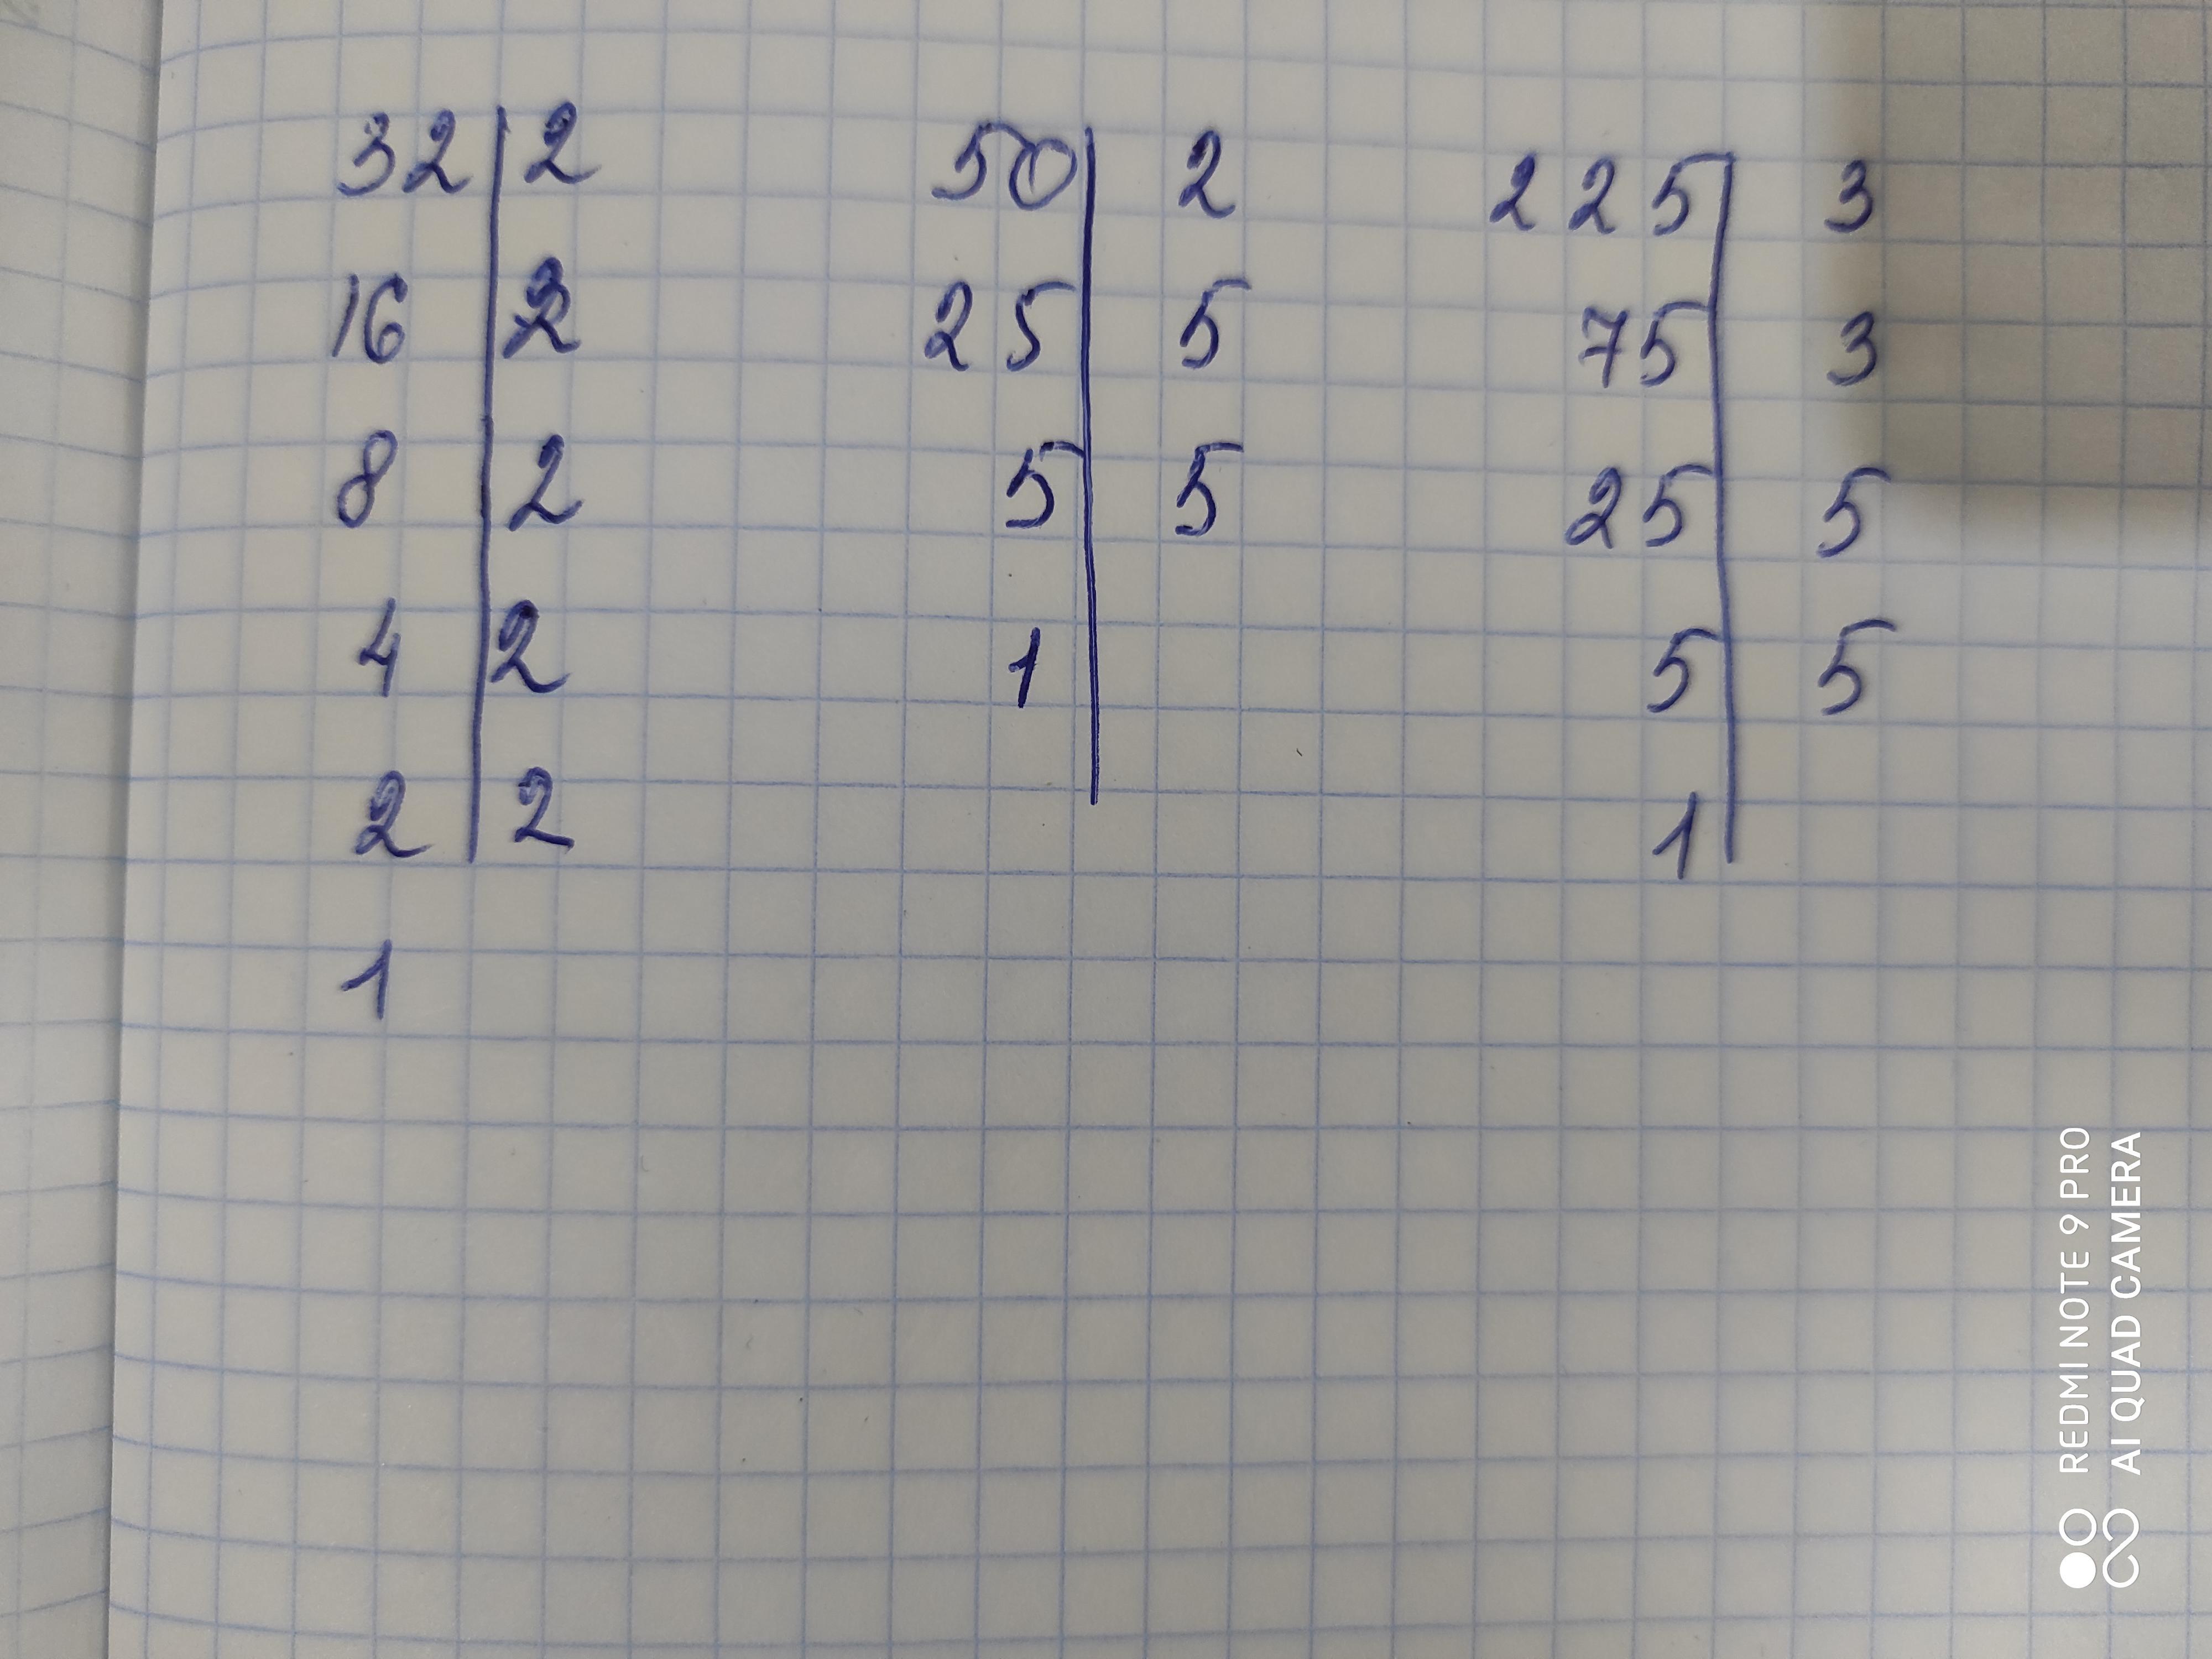 32 | 2
16 | 2
8 | 2
4 | 2
2 | 2
1
50 | 2
25 | 5
5 | 5
1 |
225 | 3
75 | 3
25 | 5
5 | 5
1 |
REDMI NOTE 9 PRO
AI QUAD CAMERA